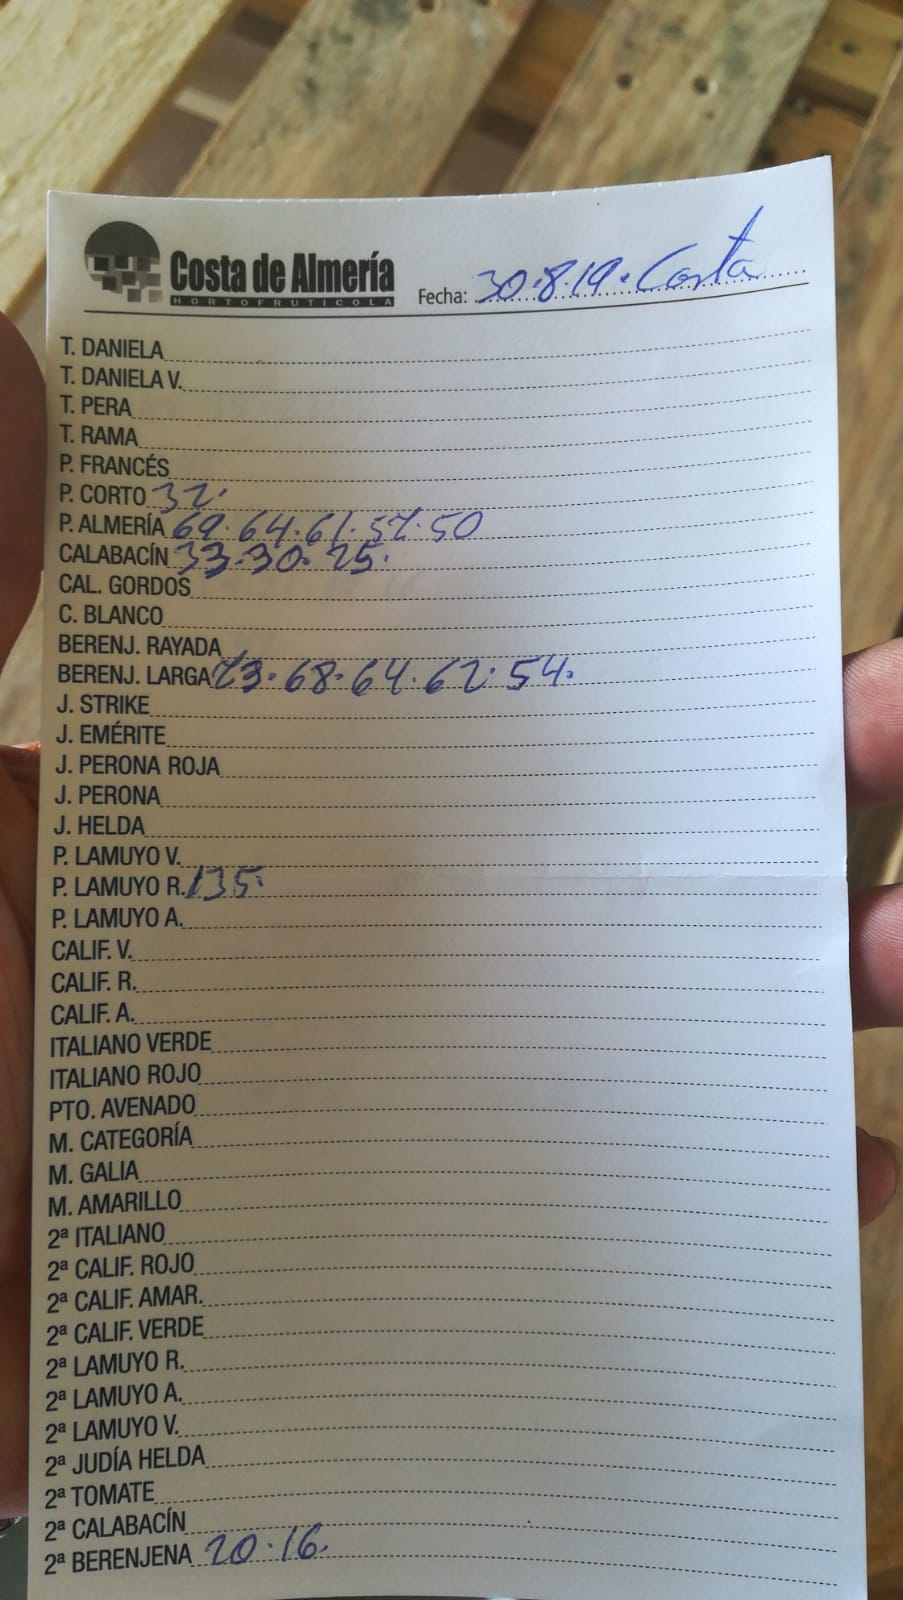 Costa de Almería
HORTOFRUTICOLA
Fecha: 30.8.19. Costa
T. DANIELA
T. DANIELA V.
T. PERA
T. RAMA
P. FRANCÉS
P. CORTO 32.
P. ALMERÍA 69.64.61.57.50
CALABACÍN 33.30.25.
CAL. GORDOS
C. BLANCO
BERENJ. RAYADA
BERENJ. LARGA 73.68.64.62.54.
J. STRIKE
J. EMÉRITE
J. PERONA ROJA
J. PERONA
J. HELDA
P. LAMUYO V.
P. LAMUYO R. 135.
P. LAMUYO A.
CALIF. V.
CALIF. R.
CALIF. A.
ITALIANO VERDE
ITALIANO ROJO
PTO. AVENADO
M. CATEGORÍA
M. GALIA
M. AMARILLO
2ª ITALIANO
2ª CALIF. ROJO
2ª CALIF. AMAR.
2ª CALIF. VERDE
2ª LAMUYO R.
2ª LAMUYO A.
2ª LAMUYO V.
2ª JUDÍA HELDA
2ª TOMATE
2ª CALABACÍN
2ª BERENJENA 20.16.